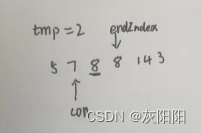 tmp=2
endIndex
5 7 8 8 1 4 3
con
CSDN @灰阳阳